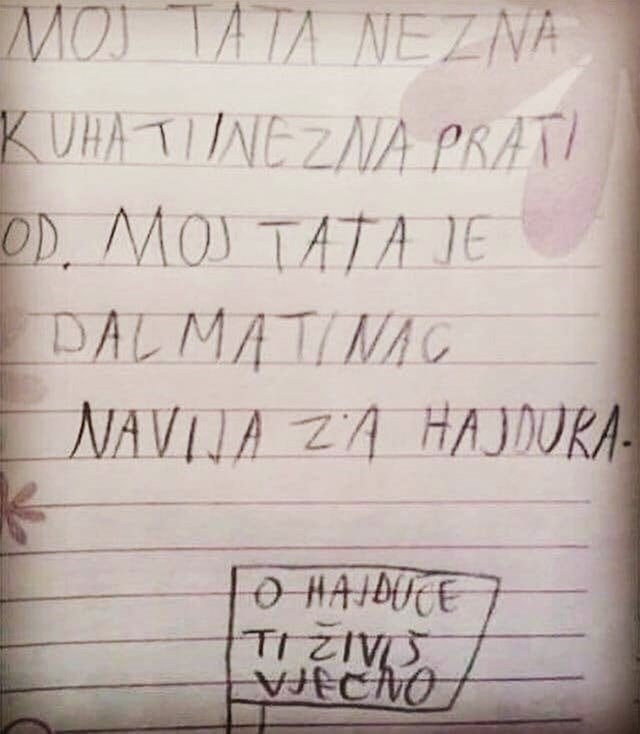 MOJ TATA NEZNA
KUHATI I NEZNA PRATI
OD. MOJ TATA JE
DALMATINAC
NAVIJA ZA HAJDUKA.
O HAJDUČE
TI ŽIVIŠ
VJEČNO